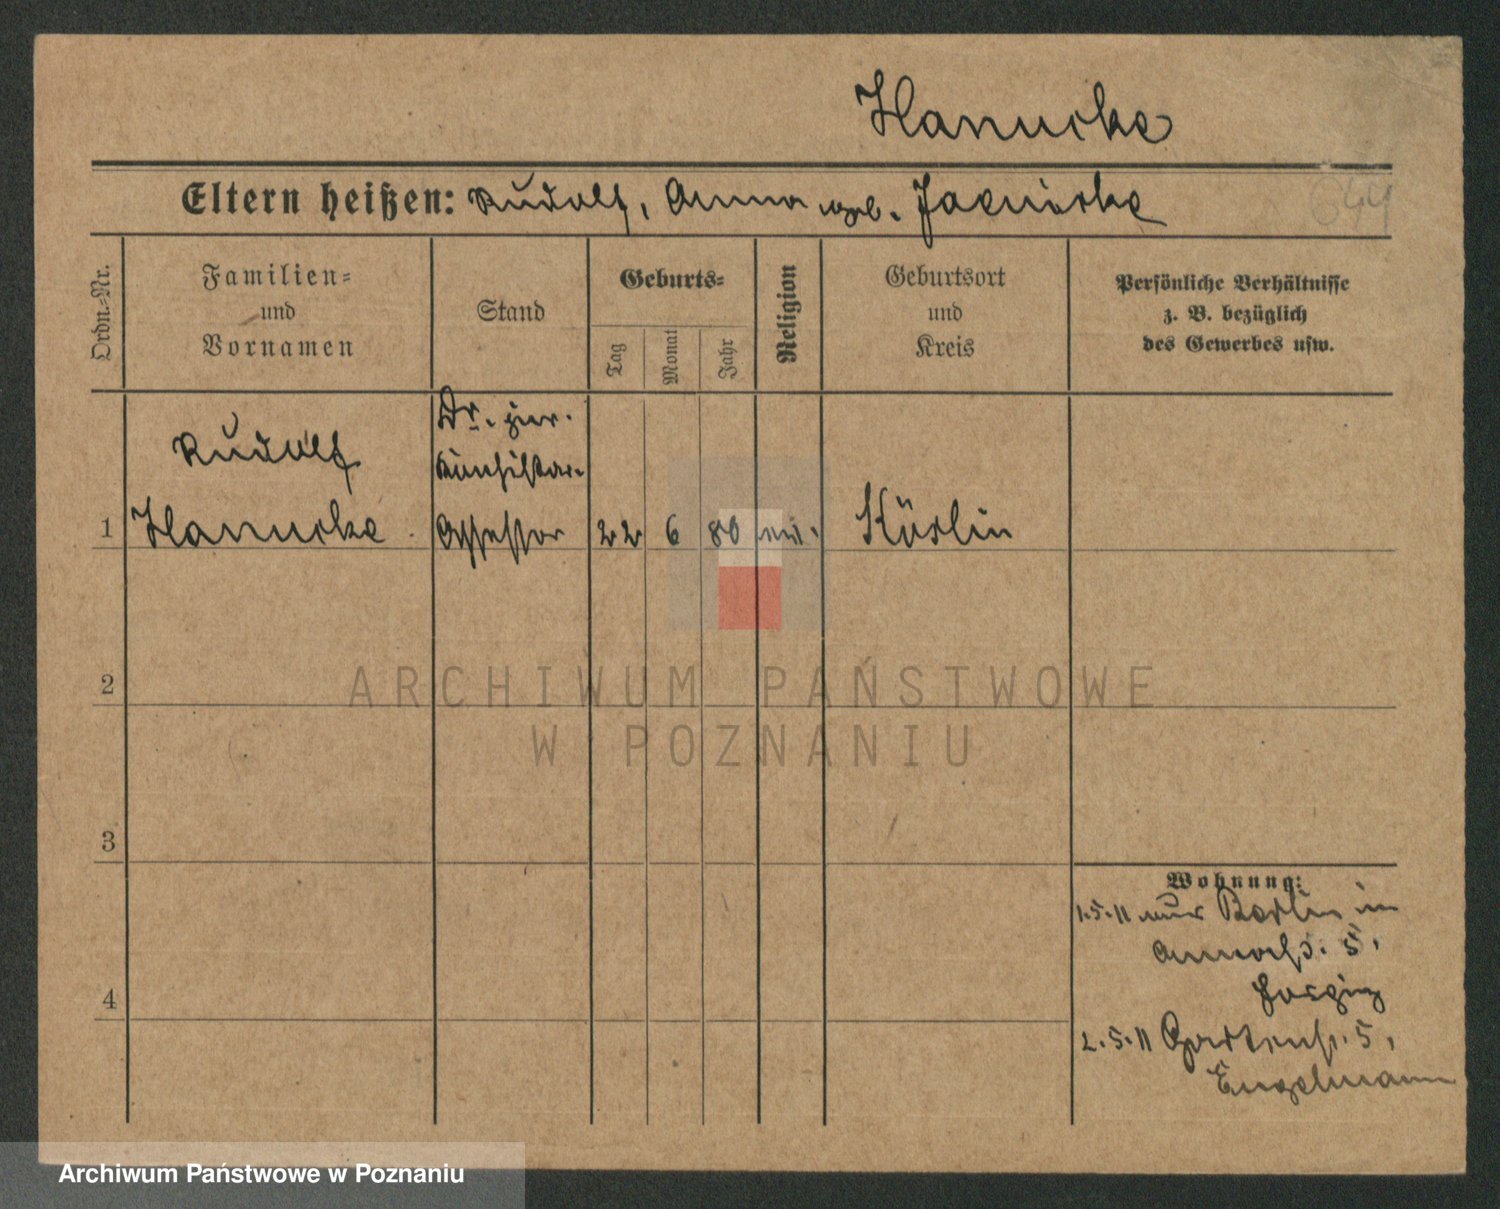 Hanncke
Eltern heißen: Rudolf, Anna geb. Jaenicke
644
Ordn.-Nr.
Familien-
und
Vornamen
Stand
Geburts-
Tag
Monat
Jahr
Religion
Geburtsort
und
Kreis
Persönliche Verhältnisse
z. B. bezüglich
des Gewerbes usw.
Rudolf
Dr. jur.
Konsistor-
1 Hanncke Assessor 22 6 80 ev. Köslin
2
3
4
Wohnung:
1.5.11 aus Berlin in
5.
2.5.11 Gartenstr. 5,
Engelmann
ARCHIWUM PAŃSTWOWE
W POZNANIU
Archiwum Państwowe w Poznaniu